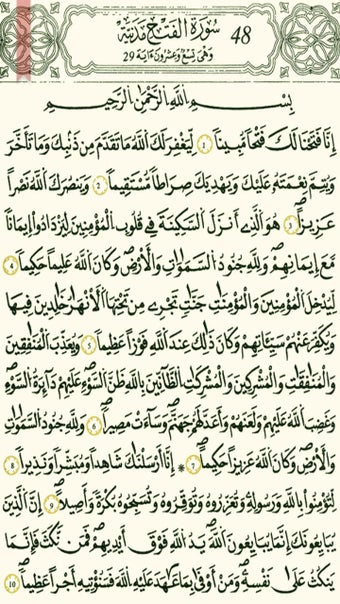 سُورَةُ الْفَتْحِ مَدَنِيَّة 48
وَهْيَ تِسْعٌ وَعِشْرُونَ ءَايَة 29
بِسْمِ اللَّهِ الرَّحْمَٰنِ الرَّحِيمِ
إِنَّا فَتَحْنَا لَكَ فَتْحاً مُّبِيناً 1 لِّيَغْفِرَ لَكَ اَللَّهُ مَا تَقَدَّمَ مِن ذَنۢبِكَ وَمَا تَأَخَّرَ
وَيُتِمَّ نِعْمَتَهُ عَلَيْكَ وَيَهْدِيَكَ صِرَٰطاً مُّسْتَقِيماً 2 وَيَنصُرَكَ اَللَّهُ نَصْراً
عَزِيزاً 3 هُوَ اَلَّذِے أَنزَلَ اَلسَّكِينَةَ فِے قُلُوبِ اِلْمُؤْمِنِينَ لِيَزْدَادُواْ إِيمَٰناً
مَّعَ إِيمَٰنِهِمْ وَلِلَّهِ جُنُودُ اُلسَّمَٰوَٰتِ وَالْأَرْضِ وَكَانَ اَللَّهُ عَلِيماً حَكِيماً 4
لِّيُدْخِلَ اَلْمُؤْمِنِينَ وَالْمُؤْمِنَٰتِ جَنَّٰتٍ تَجْرِے مِن تَحْتِهَا اَلْأَنْهَٰرُ خَٰلِدِينَ فِيهَا
وَيُكَفِّرَ عَنْهُمْ سَيِّـَٔاتِهِمْ وَكَانَ ذَٰلِكَ عِندَ اَللَّهِ فَوْزاً عَظِيماً 5 وَيُعَذِّبَ اَلْمُنَٰفِقِينَ
وَالْمُنَٰفِقَٰتِ وَالْمُشْرِكِينَ وَالْمُشْرِكَٰتِ اِلظَّآنِّينَ بِاللَّهِ ظَنَّ اَلسَّوْءِ عَلَيْهِمْ دَآئِرَةُ اُلسَّوْءِ
وَغَضِبَ اَللَّهُ عَلَيْهِمْ وَلَعَنَهُمْ وَأَعَدَّ لَهُمْ جَهَنَّمَ وَسَآءَتْ مَصِيراً 6 وَلِلَّهِ جُنُودُ اُلسَّمَٰوَٰتِ
وَالْأَرْضِ وَكَانَ اَللَّهُ عَزِيزاً حَكِيماً 7 * إِنَّآ أَرْسَلْنَٰكَ شَٰهِداً وَمُبَشِّراً وَنَذِيراً 8
لِّتُؤْمِنُواْ بِاللَّهِ وَرَسُولِهِ وَتُعَزِّرُوهُ وَتُوَقِّرُوهُ وَتُسَبِّحُوهُ بُكْرَةً وَأَصِيلاً 9 إِنَّ اَلَّذِينَ
يُبَايِعُونَكَ إِنَّمَا يُبَايِعُونَ اَللَّهَ يَدُ اُللَّهِ فَوْقَ أَيْدِيهِمْ فَمَن نَّكَثَ فَإِنَّمَا
يَنكُثُ عَلَىٰ نَفْسِهِ وَمَنْ أَوْفَىٰ بِمَا عَٰهَدَ عَلَيْهِ اِللَّهَ فَسَنُؤْتِيهِ أَجْراً عَظِيماً 10